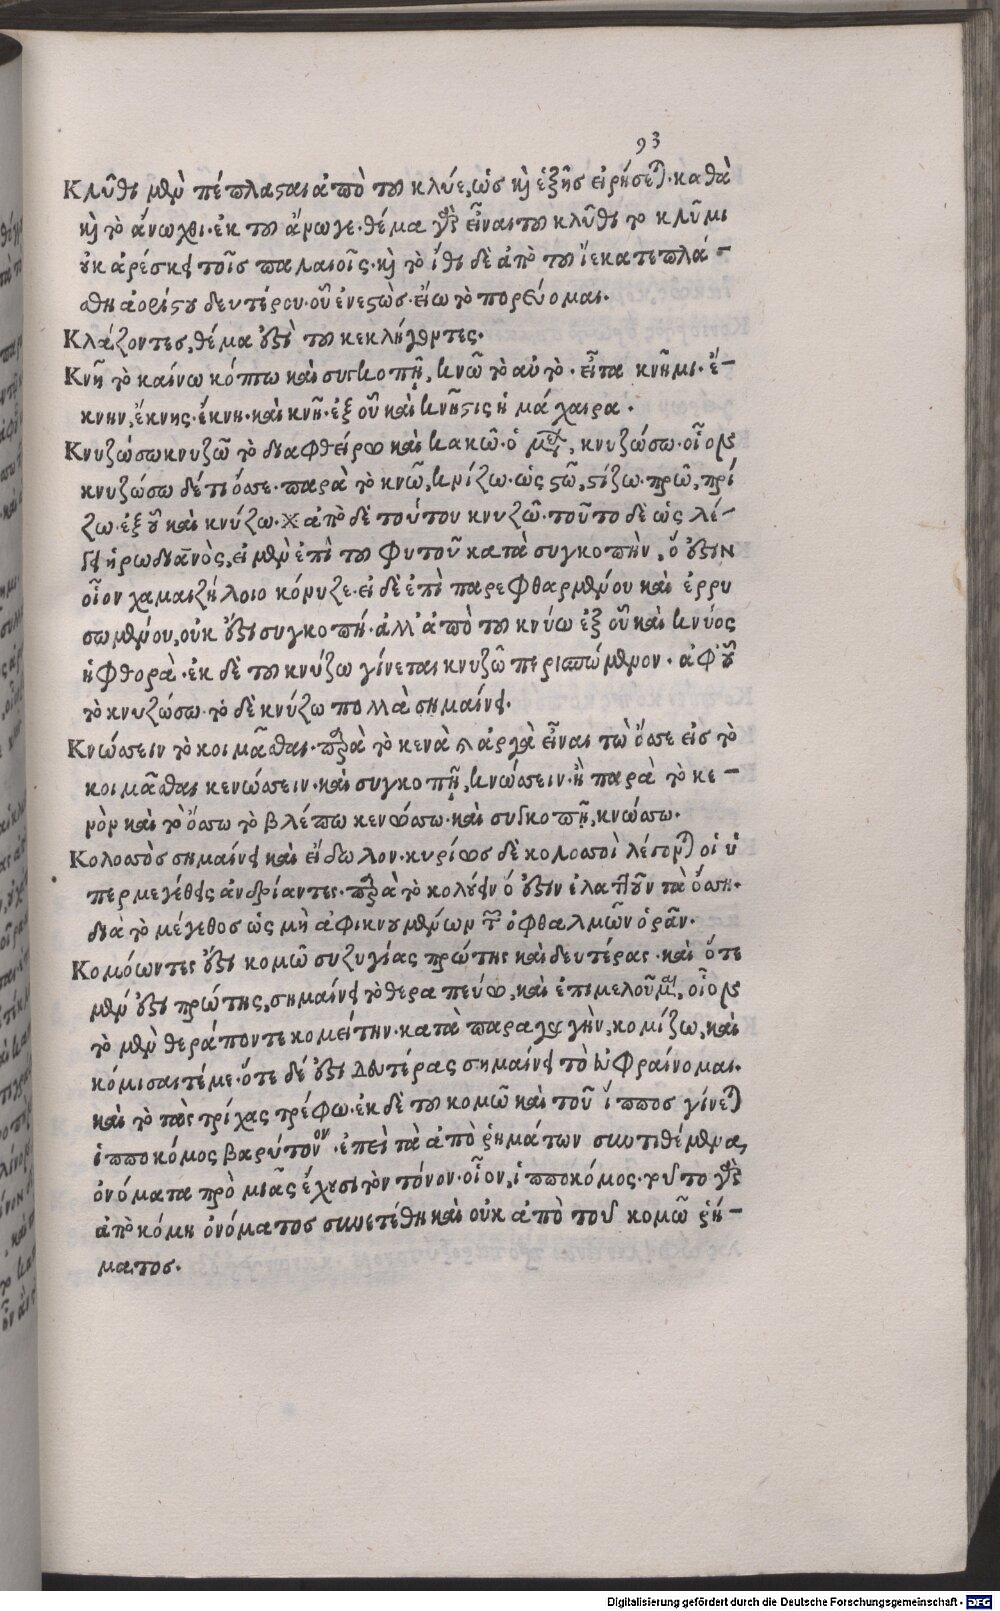 93
Κλῦθι μὲν πέπλασαι ἀπὸ τοῦ κλύε, ὡς καὶ ἑξῆς εἰρήσεται· καθὰ
καὶ τὸ ἄνωχθι· ἐκ τοῦ ἄνωγε· θέμα γὰρ εἶναι τοῦ κλῦθι τὸ κλῦμι
οὐκ ἀρέσκει τοῖς παλαιοῖς· καὶ τὸ ἴθι δὲ ἀπὸ τοῦ ἴε κατεπλά-
σθη ἀορίστου δευτέρου· οὗ ἐνεστὼς· εἴω τὸ πορεύομαι.
Κλάζοντες, θέμα ἐστὶ τοῦ κεκλήγοντες.
Κνῆ τὸ καίνω κόπτω καὶ συγκοπῇ, κνῶ τὸ αὐτό· εἶτα κνῆμι· ἔ-
κνην, ἔκνης· ἔκνη· καὶ κνῆ· ἐξ οὗ καὶ κνῆστις ἡ μάχαιρα.
Κνυζώσω κνυζῶ τὸ διαφθείρω καὶ κακῶ· ὁ μέλλων, κνυζώσω· οἷον
κνυζώσω δέ τι ὄσσε· παρὰ τὸ κνῶ, κνίζω· ὡς στῶ, στίζω· πρῶ, πρί
ζω· ἐξ οὗ καὶ κνύζω· καὶ ἀπὸ δὲ τούτου κνυζῶ· τοῦτο δὲ ὡς λέ-
γει ἡρωδιανὸς, εἰ μὲν ἐπὶ τοῦ φυτοῦ κατὰ συγκοπὴν, ὅ ἐστιν
οἷον χαμαιζήλοιο κόνυζε· εἰ δὲ ἐπὶ παρεφθαρμένου καὶ ἐρρυ
σωμένου, οὐκ ἔστι συγκοπή· ἀλλ' ἀπὸ τοῦ κνύω ἐξ οὗ καὶ κνύος
ἡ φθορὰ· ἐκ δὲ τοῦ κνύζω γίνεται κνυζῶ περισπώμενον· ἀφ' οὗ
τὸ κνυζώσω· τὸ δὲ κνύζω πολλὰ σημαίνει.
Κνώσσειν τὸ κοιμᾶσθαι· παρὰ τὸ κενὰ καὶ ἀργὰ εἶναι τὼ ὄσσε εἰς τὸ
κοιμᾶσθαι κενώσσειν· καὶ συγκοπῇ, κνώσσειν· ἢ παρὰ τὸ κε-
νὸν καὶ τὸ ὄσσω τὸ βλέπω κενώσσω· καὶ συγκοπῇ, κνώσσω.
Κολοσσὸς σημαίνει καὶ εἴδωλον· κυρίως δὲ κολοσσοὶ λέγονται οἱ ὑ
περμεγέθεις ἀνδριάντες· παρὰ τὸ κολούειν ὅ ἐστιν ἐλαττοῦν τὰ ὄσση·
διὰ τὸ μέγεθος ὡς μὴ ἀφικνουμένων τῶν ὀφθαλμῶν ὁρᾶν.
Κομόωντες ἔστι κομῶ συζυγίας πρώτης καὶ δευτέρας· καὶ ὅτε
μὲν ἐστι πρώτης, σημαίνει τὸ θεραπεύω, καὶ ἐπιμελοῦμαι, οἷον
τὸ μὲν θεράποντε κομείτην· κατὰ παραγωγὴν, κομίζω, καὶ
κόμισαι τέ με· ὅτε δέ ἐστι δευτέρας σημαίνει τὸ εὐφραίνομαι.
καὶ τὸ τὰς τρίχας τρέφω· ἐκ δὲ τοῦ κομῶ καὶ τοῦ ἵππος γίνεται
ἱπποκόμος βαρύτονον· ἐπεὶ τὰ ἀπὸ ῥημάτων συντιθέμενα,
ὀνόματα πρὸ μιᾶς ἔχουσι τὸν τόνον· οἷον, ἱπποκόμος· τοῦτο γὰρ
ἀπὸ κόμη ὀνόματος συνετέθη καὶ οὐκ ἀπὸ τοῦ κομῶ ῥή-
ματος.
Digitalisierung gefördert durch die Deutsche Forschungsgemeinschaft - DFG